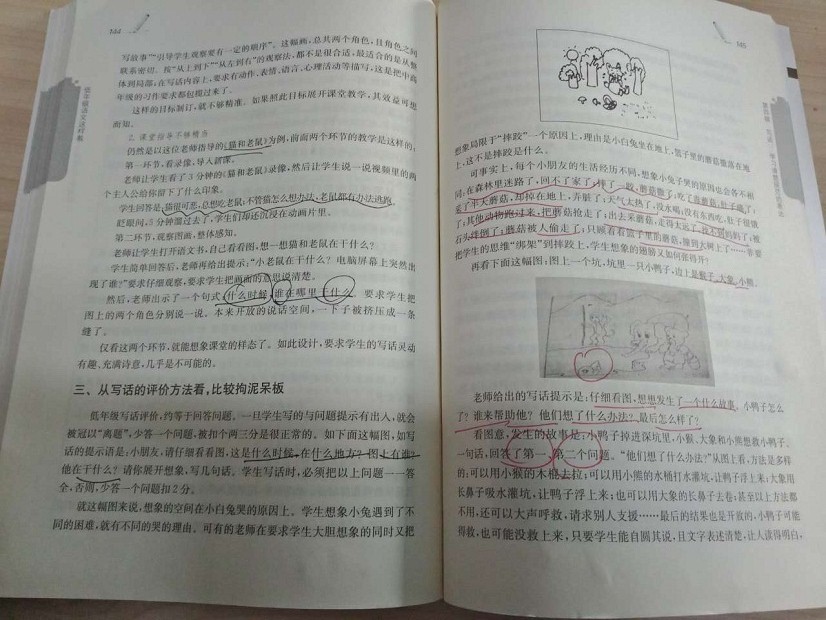 144
低年级语文这样教
写故事”“引导学生观察要有一定的顺序”。这幅画,总共两个角色,且角色之间
联系密切。按“从上到下”“从左到右”的观察法,都不是很合适,最适合的是从整
体到局部,在写话内容上,要求有动作、表情、语言、心理活动等描写,这是把中高
年级的习作要求都包揽过来了。
这样的目标制订,就不够精准。如果照此目标展开课堂教学,其效益可想
而知。
2. 课堂指导不够精当
仍然是以这位老师指导的《猫和老鼠》为例,前面两个环节的教学是这样的,
第一环节,看录像,导入新课。
老师让学生看了3分钟的《猫和老鼠》录像,然后让学生说一说视频里的两
个主人公给你留下了什么印象。
学生回答是,猫很可恶,总想吃老鼠,不管猫怎么想办法,老鼠都有办法逃跑。
眨眼间,5分钟溜过去了,学生们却还沉浸在动画片里。
第二环节,观察图画,整体感知。
老师让学生打开语文书,自己看看图,想一想猫和老鼠在干什么?
学生简单回答后,老师再给出提示:“小老鼠在干什么?电脑屏幕上突然出
现了谁?”要求仔细观察,要求学生把画面的意思说清楚。
然后,老师出示了一个句式,什么时候,谁在哪里干什么。要求学生把
图上的两个角色分别说一说。本来开放的说话空间,一下子被挤压成一条
缝了。
仅看这两个环节,就能想象课堂的样态了。如此设计,要求学生的写话灵动
有趣、充满诗意,几乎是不可能的。
三、从写话的评价方法看,比较拘泥呆板
低年级写话评价,约等于回答问题。一旦学生写的与问题提示有出入,就会
被冠以“离题”,少答一个问题,被扣个两三分是很正常的。如下面这幅图,如写
话的提示语是:小朋友,请仔细看看图,这是什么时候,在什么地方?图上有谁?
他在干什么?请你展开想象,写几句话。学生写话时,必须把以上问题一一答
全,否则,少答一个问题扣2分。
就这幅图来说,想象的空间在小白兔哭的原因上。学生想象小兔遇到了不
同的困难,就有不同的哭的理由。可有的老师在要求学生大胆想象的同时又把
145
想象局限于“摔跤”一个原因上,理由是小白兔坐在地上,篮子里的蘑菇撒落在地
上,这不是摔跤是什么。
可事实上,每个小朋友的生活经历不同,想象小兔子哭的原因也会各不相
同:在森林里迷路了,回不了家了;摔了一跤,蘑菇撒了;吃了毒蘑菇,肚子疼了;
采了半天蘑菇,却掉在地上,弄脏了;天气太热了,没水喝,没有东西吃,肚子很饿
了;其他动物跑过来,把蘑菇抢走了;出去采蘑菇,走得太远了,找不到妈妈了;被
石头绊倒了;蘑菇被人偷走了;只顾看着篮子里的蘑菇,撞到大树上了……非要
把学生的思维“绑架”到摔跤上,学生想象的翅膀又如何张得开?
再看下面这幅图:图上一个坑,坑里一只小鸭子,边上是猴子、大象、小熊。
老师给出的写话提示是:仔细看图,想想发生了一个什么故事。小鸭子怎么
了?谁来帮助他?他们想了什么办法?最后怎么样了?
看图意,发生的故事是:小鸭子掉进深坑里,小猴、大象和小熊想救小鸭子。
一句话,回答了第一、第二个问题。“他们想了什么办法?”从图上看,方法是多样
的:可以用小猴的木棍去拉;可以用小熊的水桶打水灌坑,让鸭子浮上来;大象用
长鼻子吸水灌坑,让鸭子浮上来;也可以用大象的长鼻子去卷;甚至以上方法都
不用,还可以大声呼救,请求别人支援……最后的结果也是开放的,小鸭子可能
得救,也可能没救上来,只要学生能自圆其说,且文字表述清楚,让人读得明白,